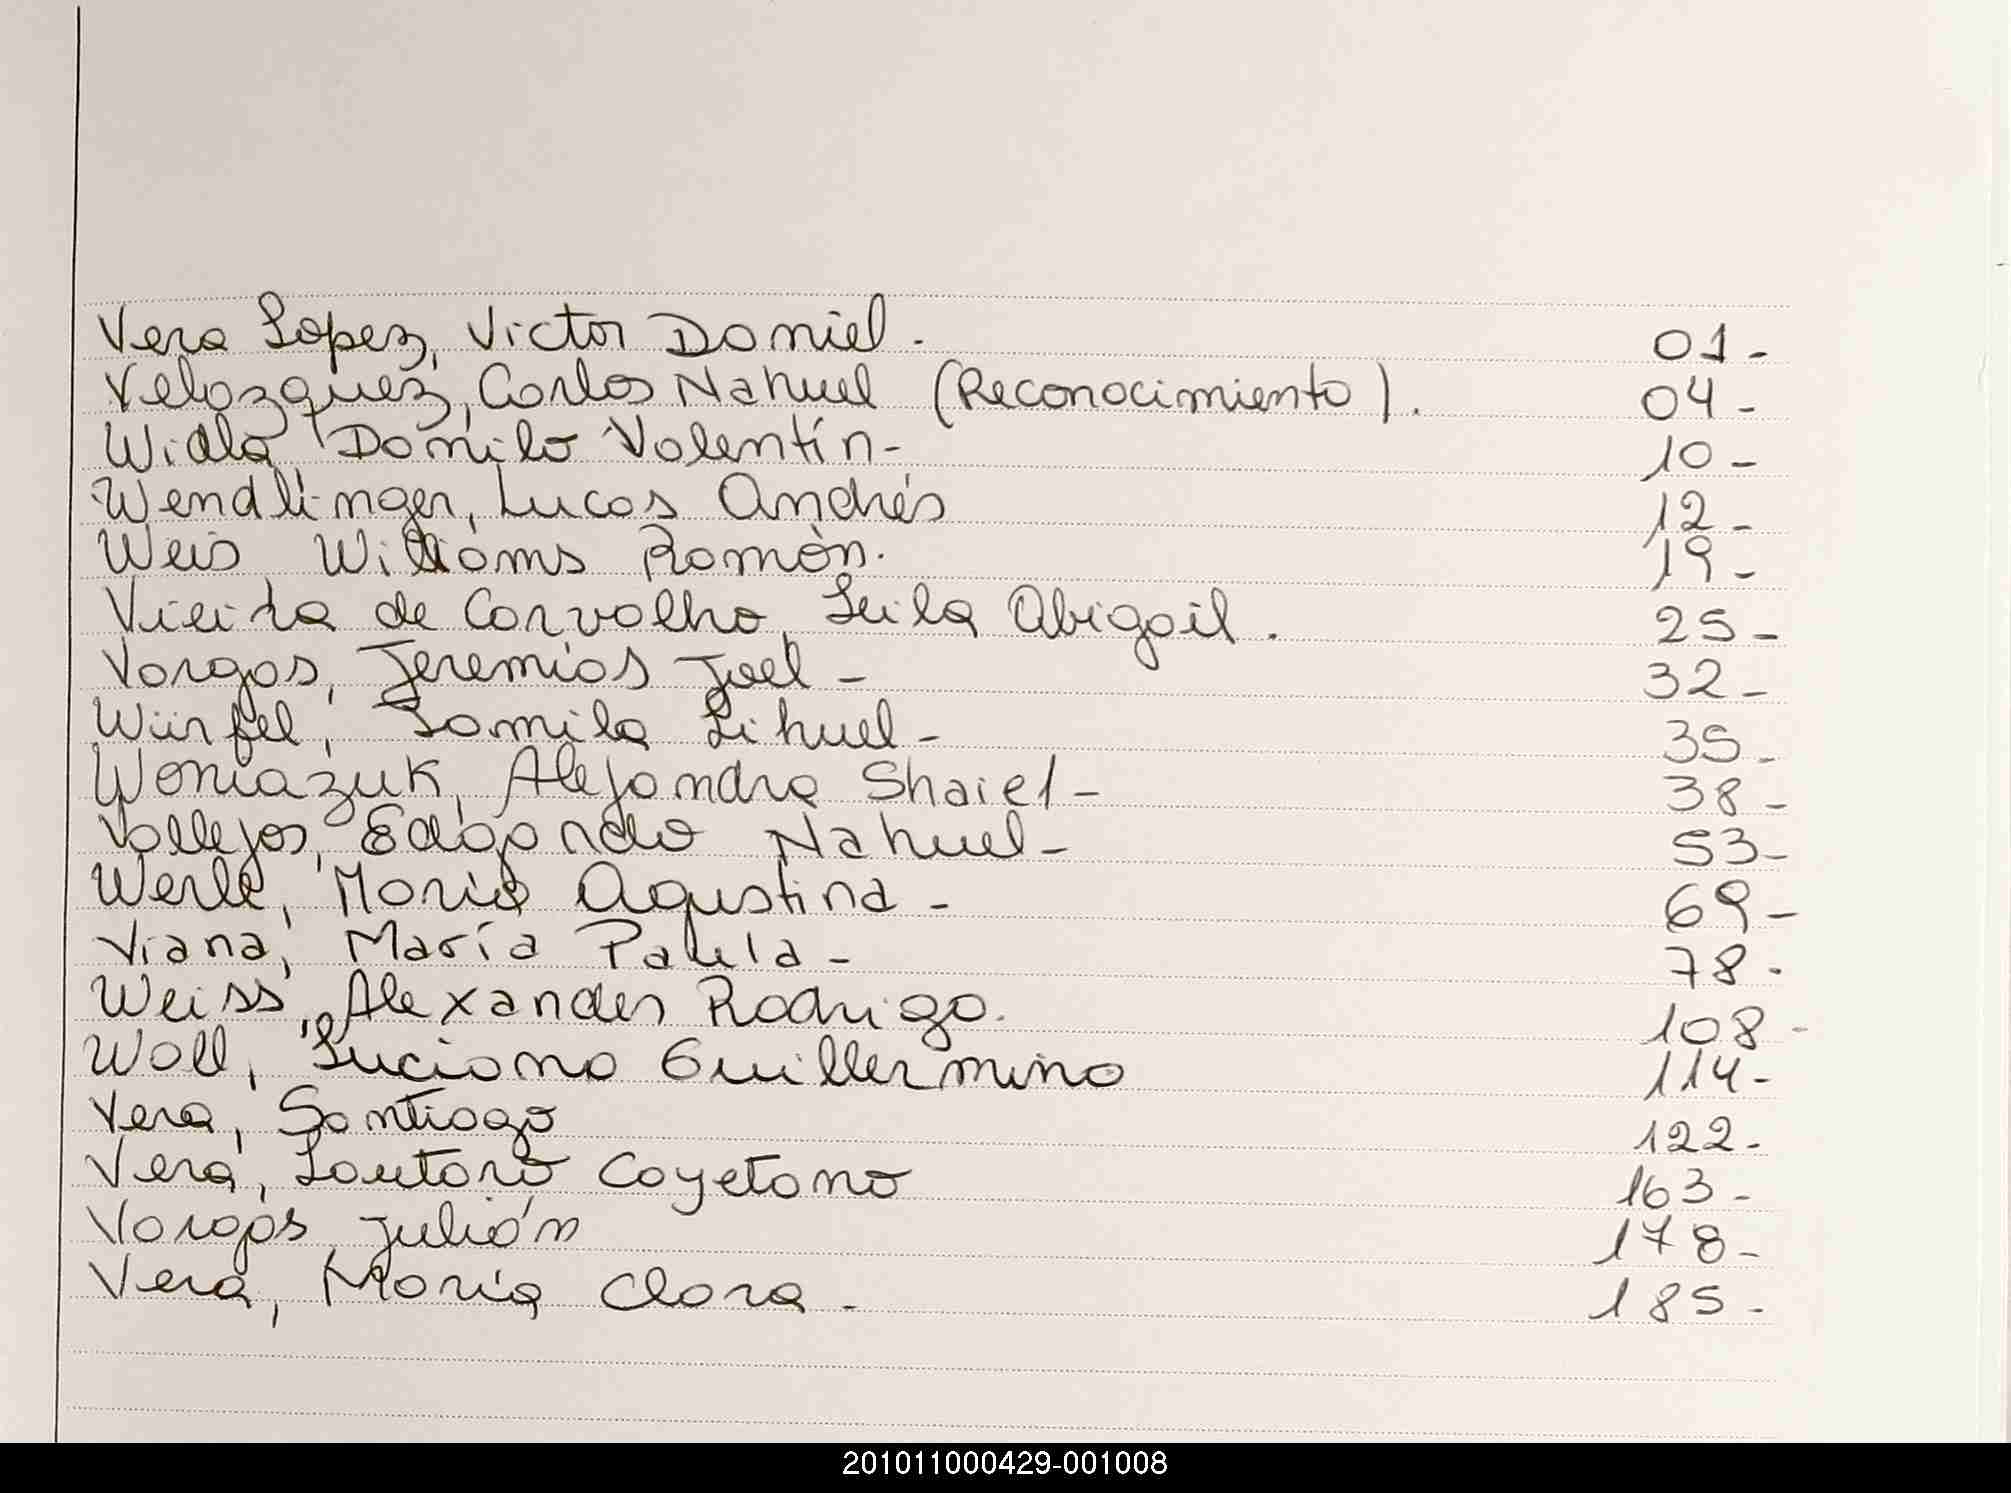 Vera Lopez, Victor Daniel. 01-
Velazquez, Carlos Nahuel (Reconocimiento). 04-
Widla, Danilo Valentín- 10-
Wendlinger, Lucas Andrés 12-
Weis, Williams Román. 19-
Vieira de Carvalho, Leila Abigail. 25-
Vargas, Jeremias Joel- 32-
Würfel, Lihuel- 35-
Woniazuk, Alejandra Shaiel- 38-
Vallejos, Nahuel- 53-
Werle, Maria Agustina- 69-
Viana, María Paula- 78-
Weiss, Alexander Rodrigo. 108-
Woll, Luciano Guillermino 114-
Vera, Santiago 122-
Vera, Lautaro Cayetano 163-
Vargas, Julián 178-
Vera, María Clara- 185-
201011000429-001008